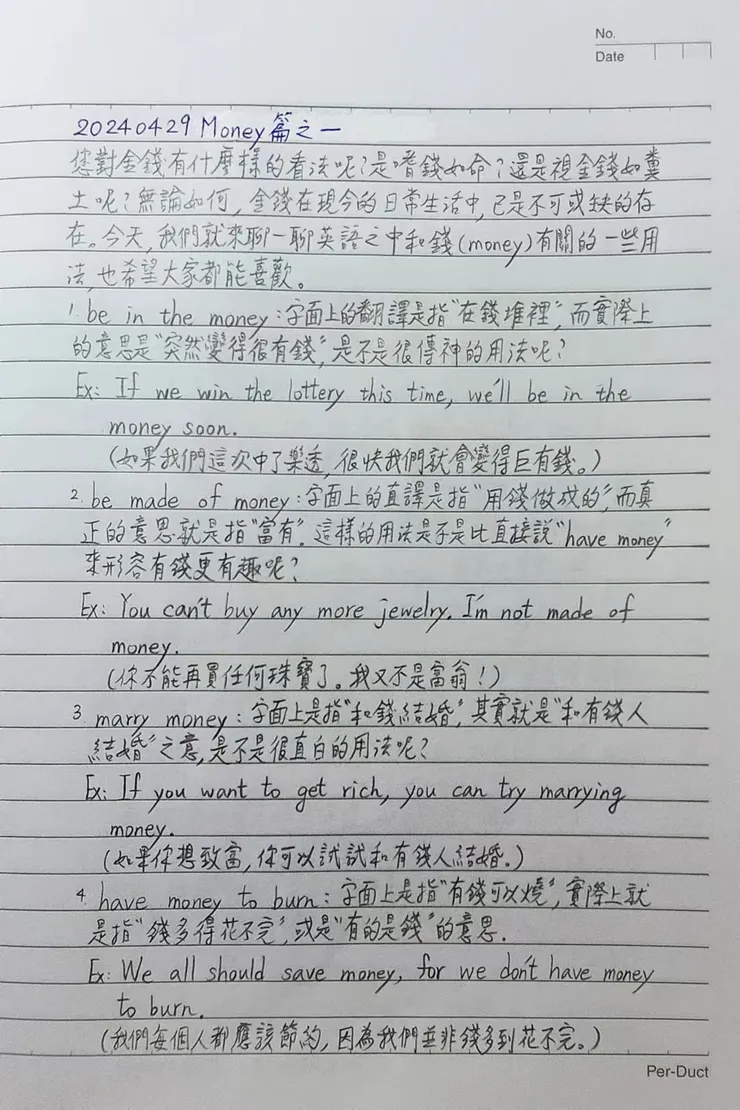 No.
Date
20240429 Money篇之一
您對金錢有什麼樣的看法呢?是嗜錢如命?還是視金錢如糞
土呢?無論如何,金錢在現今的日常生活中,已是不可或缺的存
在。今天,我們就來聊一聊英語之中和錢(money)有關的一些用
法,也希望大家都能喜歡。
1. be in the money:字面上的翻譯是指"在錢堆裡",而實際上
的意思是"突然變得很有錢",是不是很傳神的用法呢?
Ex: If we win the lottery this time, we'll be in the
money soon.
(如果我們這次中了樂透,很快我們就會變得巨有錢。)
2. be made of money:字面上的直譯是指"用錢做成的",而真
正的意思就是指"富有"。這樣的用法是不是比直接說"have money"
來形容有錢更有趣呢?
Ex: You can't buy any more jewelry. I'm not made of
money.
(你不能再買任何珠寶了。我又不是富翁!)
3. marry money:字面上是指"和錢結婚",其實就是"和有錢人
結婚"之意,是不是很直白的用法呢?
Ex: If you want to get rich, you can try marrying
money.
(如果你想致富,你可以試試和有錢人結婚。)
4. have money to burn:字面上是指"有錢可以燒",實際上就
是指"錢多得花不完",或是"有的是錢"的意思.
Ex: We all should save money, for we don't have money
to burn.
(我們每個人都應該節約,因為我們並非錢多到花不完。)
Per-Duct